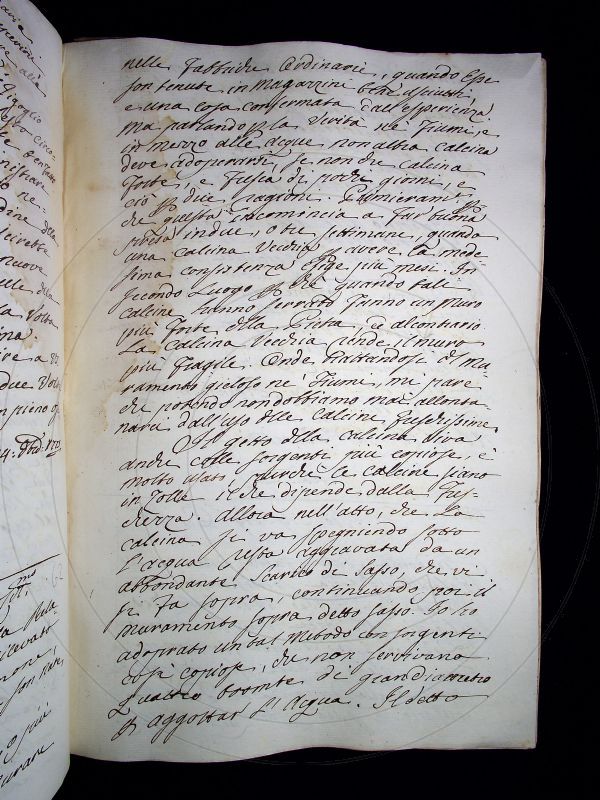 nelle Fabbriche Ordinarie, quando esse
son tenute in Magazzini bene asciutti,
e una cosa confermata dall'esperienza
ma parlando p la Verità ne' Fiumi, e
in mezzo alle acque non altra calcina
deve adoperarsi, se non che calcina
forte, e fresca di pochi giorni, e
ciò p due ragioni. Primieram. p
che questa incomincia a far buona
presa in due, o tre settimane, quando
una calcina Vecchia p avere la mede
sima consistenza esige più mesi. In
secondo Luogo p che quando tali
calcine hanno serrato fanno un muro
più forte della Pietra, e al contrario
La calcina Vecchia rende il muro
più fragile. Onde trattandosi di Mu
ramento geloso ne' Fiumi, mi pare
che potendo non dobbiamo mai allonta
narci dall'uso delle calcine freschissime.
Il getto della calcina viva
anche colle sorganti più copiose, è
molto usato, purche le calcine siano
in Zolle il che dipende dalla fres
chezza. Allora nell'atto, che La
calcina si va spegniendo sotto
L'acqua resta aggravata da un
abbondante scarico di sasso, che vi
si fa sopra, continuando poi il
muramento sopra detto sasso. Io ho
adoprato un tal Metodo con sorgenti
così copiose, che non servivano
Quattro trombe di gran diametro
p aggottar L'Acqua. Il detto